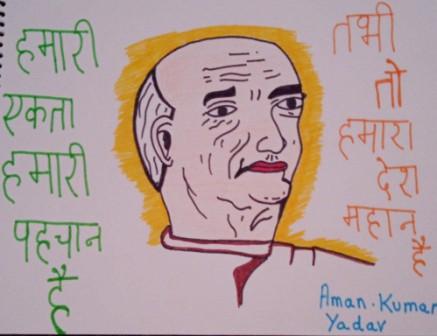 हमारी
एकता
हमारी
पहचान
है
तभी
तो
हमारा
देश
महान
है
Aman. Kumar
Yadav